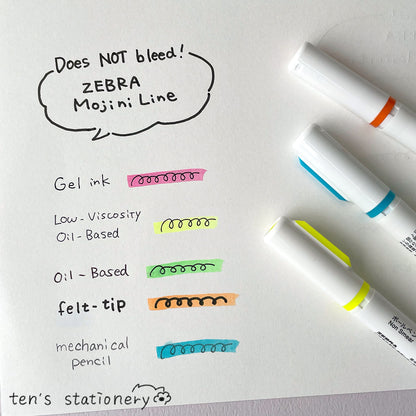 Does NOT bleed!
ZEBRA
Mojini Line
Gel ink
Low-Viscosity
Oil-Based
Oil-Based
felt-tip
mechanical
pencil
ten's stationery
ボールペン
Non Smear